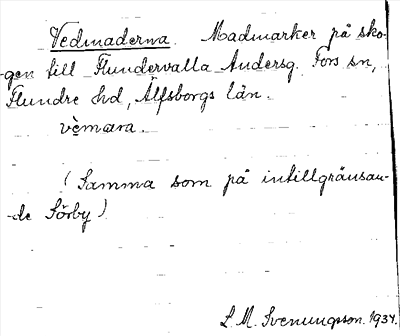 Vedmaderna. Madmarker på sko-
-gen till Flundervalla Andersg. Fors sn,
Flundre hd, Älfsborgs län.
vèmara.
(Samma som på intillgränsan-
-de Sörby)
L. M. Svenungsson. 1934.